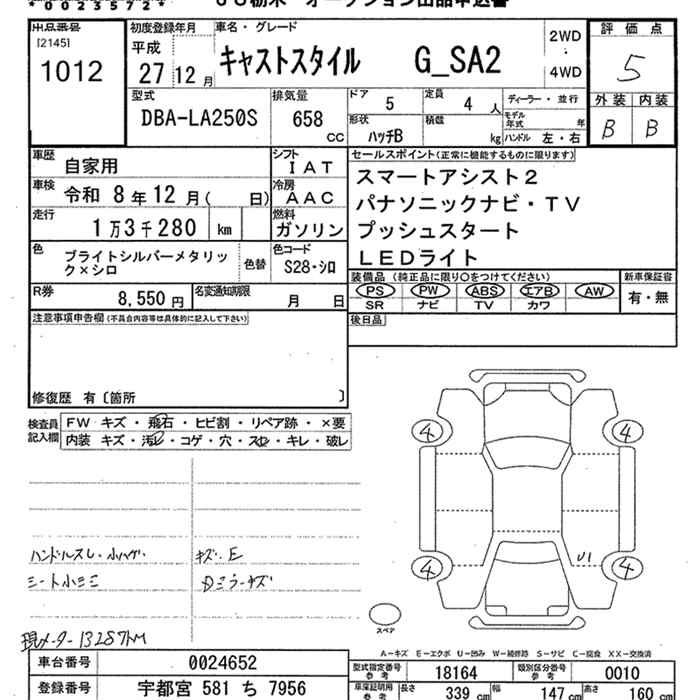 *0023572*
JU栃木 オークション出品申込書
出品番号
[2145]
1012
初度登録年月
平成
27 12 月
車名・グレード
キャストスタイル G_SA2
2WD
・
4WD
評価点
5
外装 内装
B B
型式
DBA-LA250S
排気量
658
CC
ドア 5
定員 4 人
ディーラー・並行
形状 ハッチB
積載 kg
モデル年式 年
ハンドル 左・右
車歴 自家用
シフト IAT
車検 令和 8年12月( 日)
冷房 AAC
走行 1万3千280 km
燃料 ガソリン
色 ブライトシルバーメタリック×シロ
色替
色コード S28・シロ
R券 8,550円
名変通知期限 月 日
セールスポイント(正常に機能するものに限ります)
スマートアシスト2
パナソニックナビ・TV
プッシュスタート
LEDライト
装備品 (純正品に限り○をつけてください)
PS PW ABS エアB AW
SR ナビ TV カワ
新車保証書
有・無
後日品
注意事項申告欄(不具合内容等は具体的に記入して下さい)
修復歴 有〔箇所 〕
検査員記入欄
FW キズ・飛石・ヒビ割・リペア跡・×要
内装 キズ・汚レ・コゲ・穴・スレ・キレ・破レ
4 4
4 4
U1
ハンドルスレ・小ハゲ キズ・E
シート小シミ Dミラーキズ
現メーター 13287KM
スペア
A-キズ E-エクボ U-凹み W-補修跡 S-サビ C-腐食 XX-交換済
車台番号 0024652
登録番号 宇都宮 581 ち 7956
型式指定番号 参考 18164
類別区分番号 参考 0010
車庫証明用 参考 長さ 339 cm 幅 147 cm 高さ 160 cm